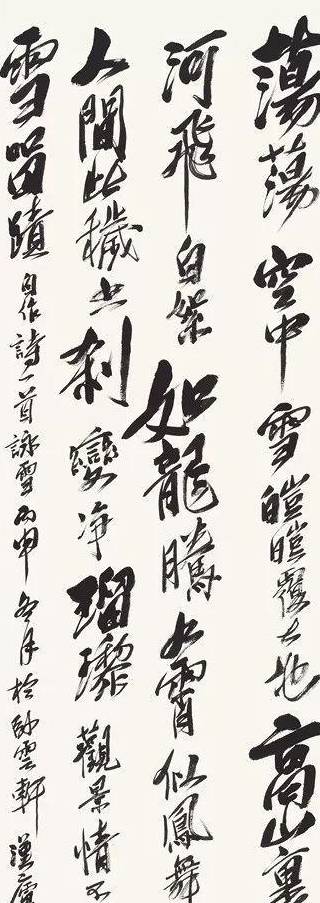 蕩蕩空中雪皚皚覆大地高山裏
河飛白絮如龍騰九霄似鳳舞
人間此穢土刹變净瑠璃觀景情不
雪留蹟自作詩一首詠雪丙申冬月於卧雲軒